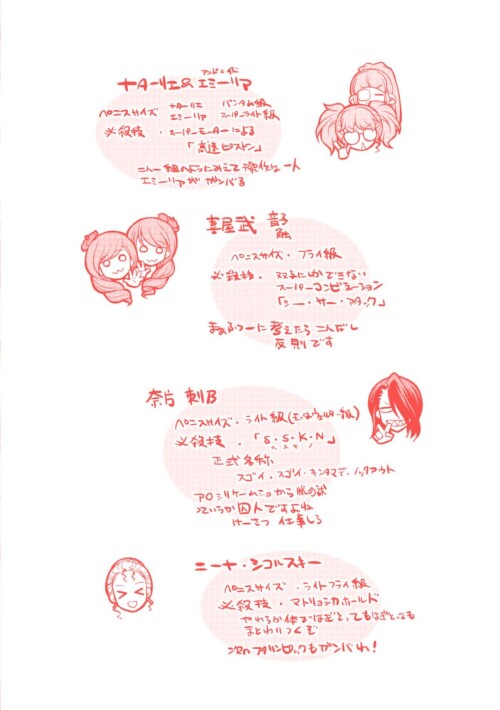 アンドロイド
ナターリエ& エミーリア
ペニスサイズ ナターリエ バンタム級
エミーリア スーパーライト級
必殺技・スーパーモーターによる
「高速ピストン」
エミーリアがガンバる
喜屋武 音子
ペニスサイズ・フライ級
必殺技・双子にしかできない
スーパーコンビネーション
「シー・サー・アタック」
まあふつーに考えたらこんなん
反則です
奈片 刺B
ペニスサイズ・ライト級
必殺技・「S・S・K・N」
正式名称
スゴイ・スゴイ・キンタマデ・ノックアウト
っていうか囚人ですよね
けーさつ 仕事しろ
ニーナ・シコルスキー
ペニスサイズ・ライトフライ級
必殺技・マトリョシカホールド
やわらか体がはぎとってもはぎとっても
まとわりつくぞ